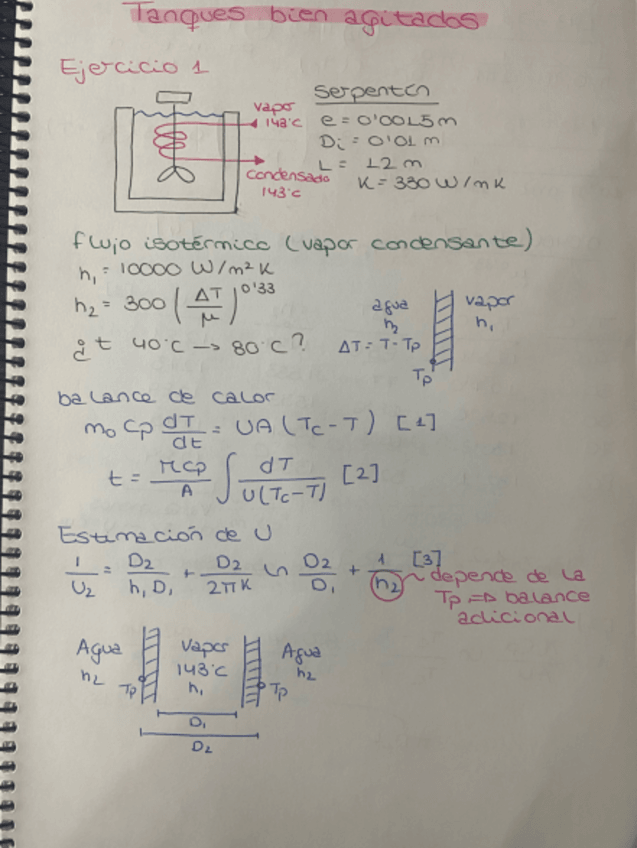 Tanques bien agitados
Ejercicio 1
Serpentín
vapor
143°C
e = 0'0015 m
Di = 0'01 m
L = 12 m
condensado
143°C
K = 330 W/mK
flujo isotérmico (vapor condensante)
h₁ = 10000 W/m² K
h₂ = 300 (ΔT/μ)^0'33
agua
h₂
vapor
h₁
¿ t 40°C → 80°C?
ΔT = T - Tp
Tp
balance de calor
m₀ Cp dT/dt = UA (Tc - T) [1]
t = MCp/A ∫ dT/U(Tc-T) [2]
Estimación de U
1/U₂ = D₂/h₁D₁ + D₂/2πK ln D₂/D₁ + 1/h₂ [3]
depende de la
Tp => balance
adicional
Agua
h₂
Tp
Vapor
143°C
h₁
Agua
h₂
Tp
D₁
D₂